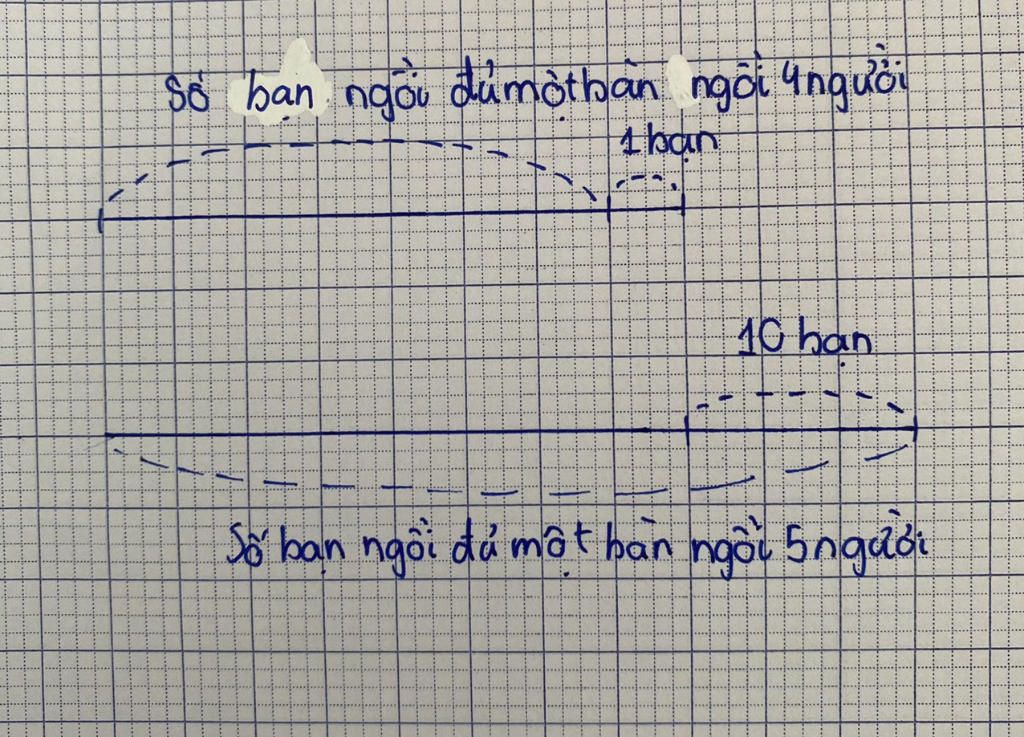 Số bạn ngồi đủ một bàn ngồi 4 người
1 bạn
10 bạn
Số bạn ngồi đủ một bàn ngồi 5 người